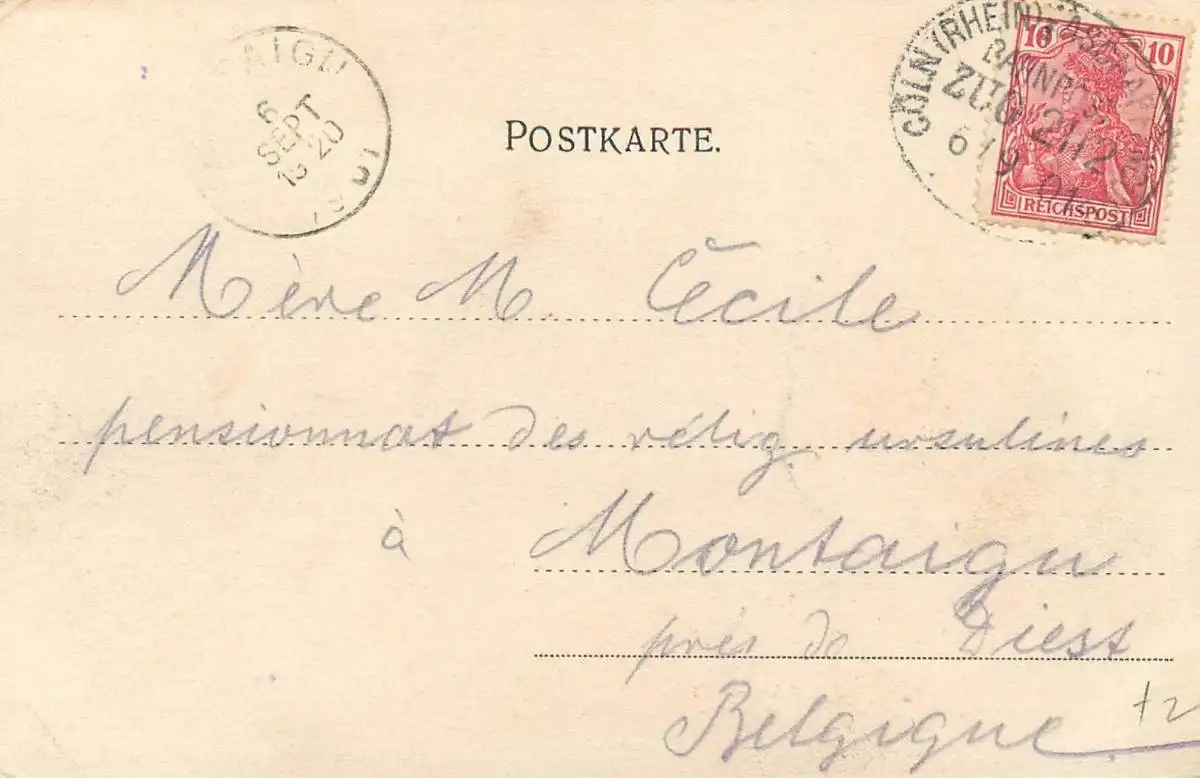 AIGU
6
SEPT
12 20
1901
POSTKARTE.
CÖLN (RHEIN)
BAHNPOST
ZUG 2112
6/9 01
10 10
REICHSPOST
Mère M. Cécile
pensionnat des rélig ursulines
à Montaigu
près de Diest
Belgique
+2